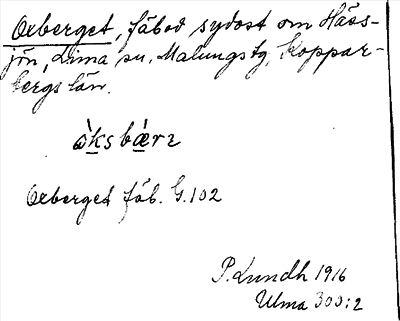 Oxberget, fäbod sydost om Häss-
jön, Lima sn, Malungs tg, Koppar-
bergs län.
ò̱ksbæ̱̀rɩ
Oxberget fäb. G.102
P. Lundh 1916
Ulma 300:2